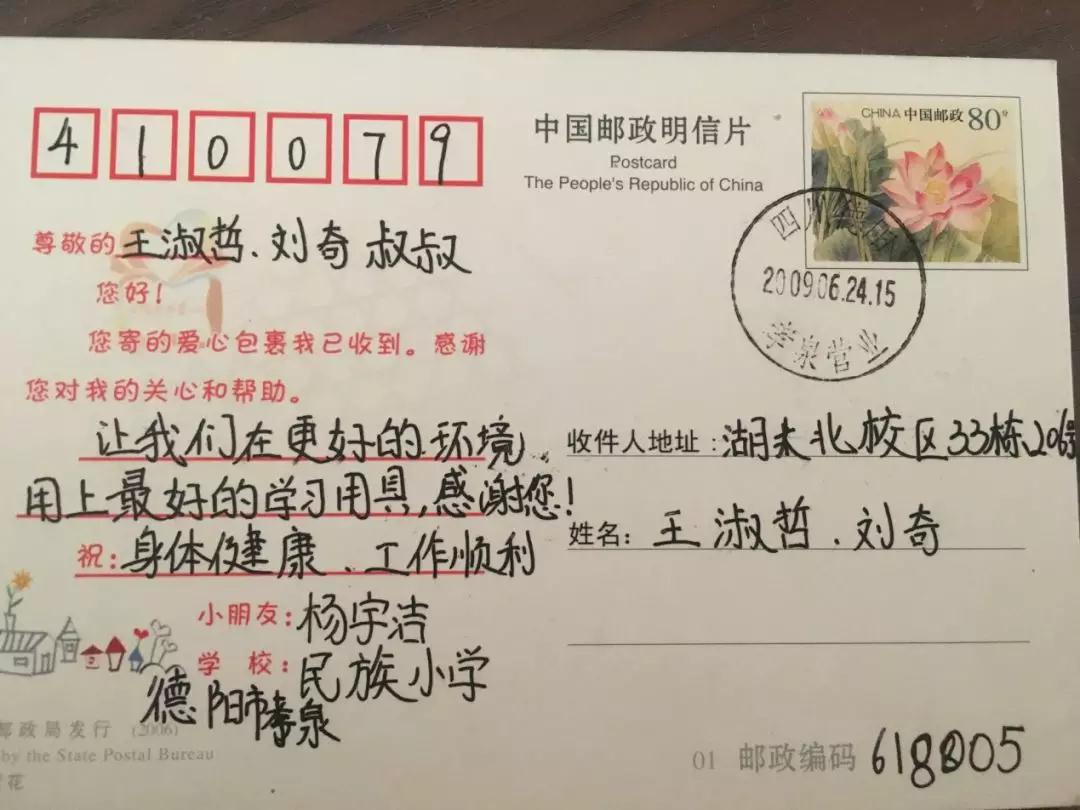 410079
中国邮政明信片
Postcard
The People's Republic of China
CHINA 中国邮政 80分
四川德阳
2009.06.24.15
孝泉营业
尊敬的王淑哲.刘奇叔叔
您好！
您寄的爱心包裹我已收到。感谢
您对我的关心和帮助。
让我们在更好的环境
用上最好的学习用具,感谢您!
祝:身体健康、工作顺利
小朋友:杨宇洁
学 校:民族小学
德阳市孝泉
收件人地址:湖 北校区33栋206号
姓名:王淑哲.刘奇
邮政局发行 (2006)
by the State Postal Bureau
花
01 邮政编码 618005